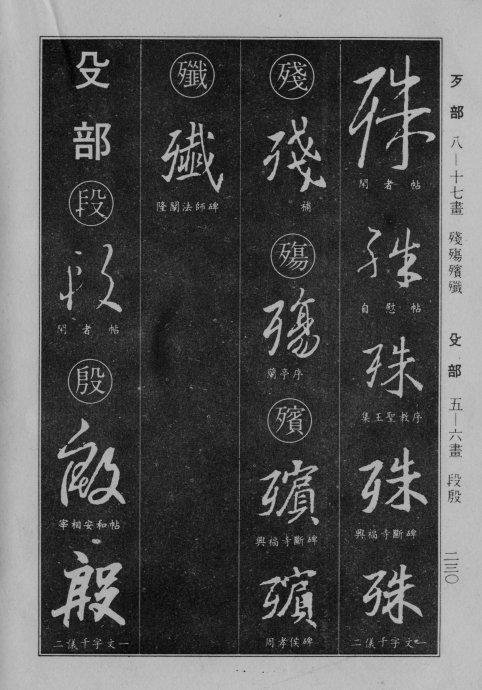 歹部 八—十七畫 殘殤殯殲 殳部 五—六畫 段殷 二三〇
殊
閣者帖
殊
自慰帖
殊
集王聖教序
殊
興福寺斷碑
殊
二儀千字文一
殘
殘
補
殤
殤
蘭亭序
殯
殯
興福寺斷碑
殯
周孝侯碑
殲
殲
隆闡法師碑
殳部
段
段
閣者帖
殷
殷
宰相安和帖
殷
二儀千字文一